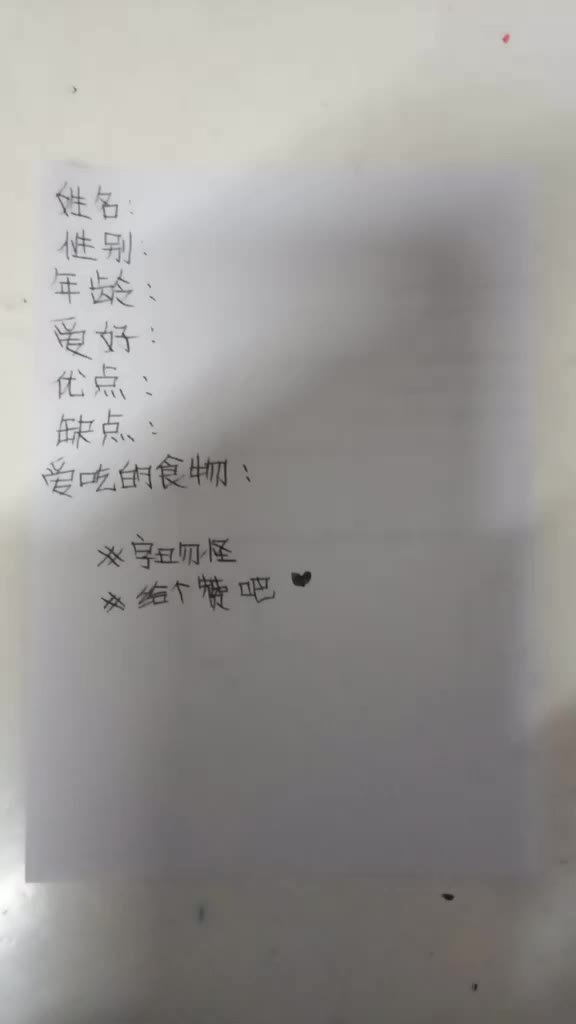 姓名:
性别:
年龄:
爱好:
优点:
缺点:
爱吃的食物:
※字丑勿怪
※给个赞吧♥